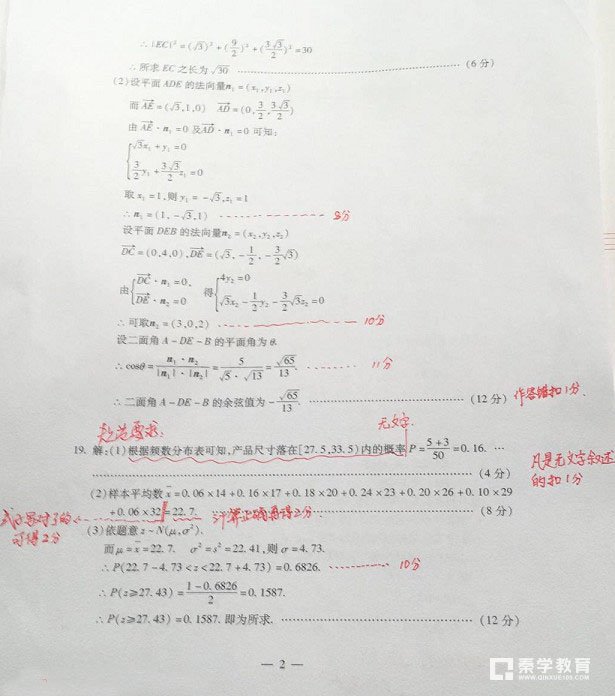 ∴|EC|²=(√3)²+(9/2)²+(3√3/2)²=30
∴所求 EC 之长为√30 …………………………………… (6 分)
(2)设平面 ADE 的法向量n₁=(x₁,y₁,z₁)
而AE=(√3,1,0) AD=(0,3/2,3√3/2)
由AE·n₁=0 及AD·n₁=0 可知:
√3x₁+y₁=0
3/2y₁+3√3/2z₁=0
取 x₁=1,则 y₁=-√3,z₁=1
∴n₁=(1,-√3,1) 8分
设平面 DEB 的法向量n₂=(x₂,y₂,z₂)
DC=(0,4,0),DE=(√3,-1/2,-3/2√3)
由{DC·n₂=0, DE·n₂=0 得{4y₂=0 √3x₂-1/2y₂-3/2√3z₂=0
∴可取n₂=(3,0,2) 10分
设二面角 A-DE-B 的平面角为 θ.
∴cosθ=n₁·n₂/|n₁|·|n₂|=5/√5·√13=√65/13. 11分
∴二面角 A-DE-B 的余弦值为-√65/13. …………………………… (12 分) 作答错扣1分.
规范要求: 无文字.
19. 解:(1)根据频数分布表可知,产品尺寸落在[27.5,33.5)内的概率 P=5+3/50=0.16. …
…………………………………… (4 分) 凡是无文字叙述的扣1分
(2)样本平均数x=0.06×14+0.16×17+0.18×20+0.24×23+0.20×26+0.10×29
+0.06×32=22.7. 计算正确再得2分. (8 分)
式子写对了的可得2分
(3)依题意 z~N(μ,σ²).
而μ=x=22.7. σ²=s²=22.41,则 σ=4.73.
∴P(22.7-4.73<z<22.7+4.73)=0.6826. 10分
∴P(z≥27.43)=1-0.6826/2=0.1587.
∴P(z≥27.43)=0.1587.即为所求. …………………………… (12 分)
— 2 —
秦学教育
WWW.QINXUE100.COM